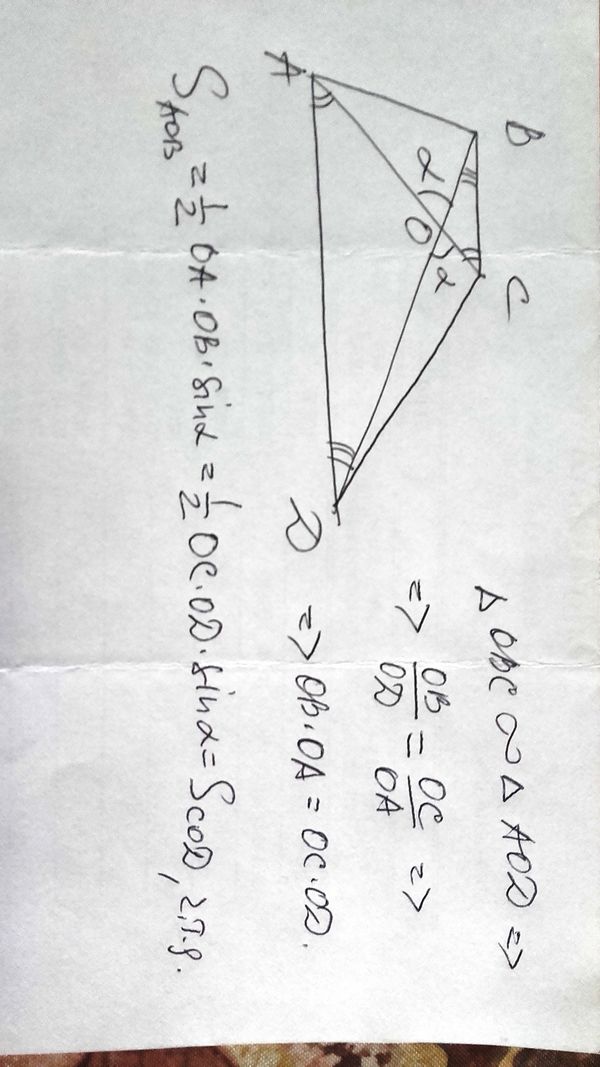 B
C
A
D
O
α
α
Δ OBC ∾ Δ AOD =>
=> OB/OD = OC/OA =>
=> OB·OA = OC·OD.
S_AOB = 1/2 OA·OB·sinα = 1/2 OC·OD·sinα = S_COD, г.т.g.